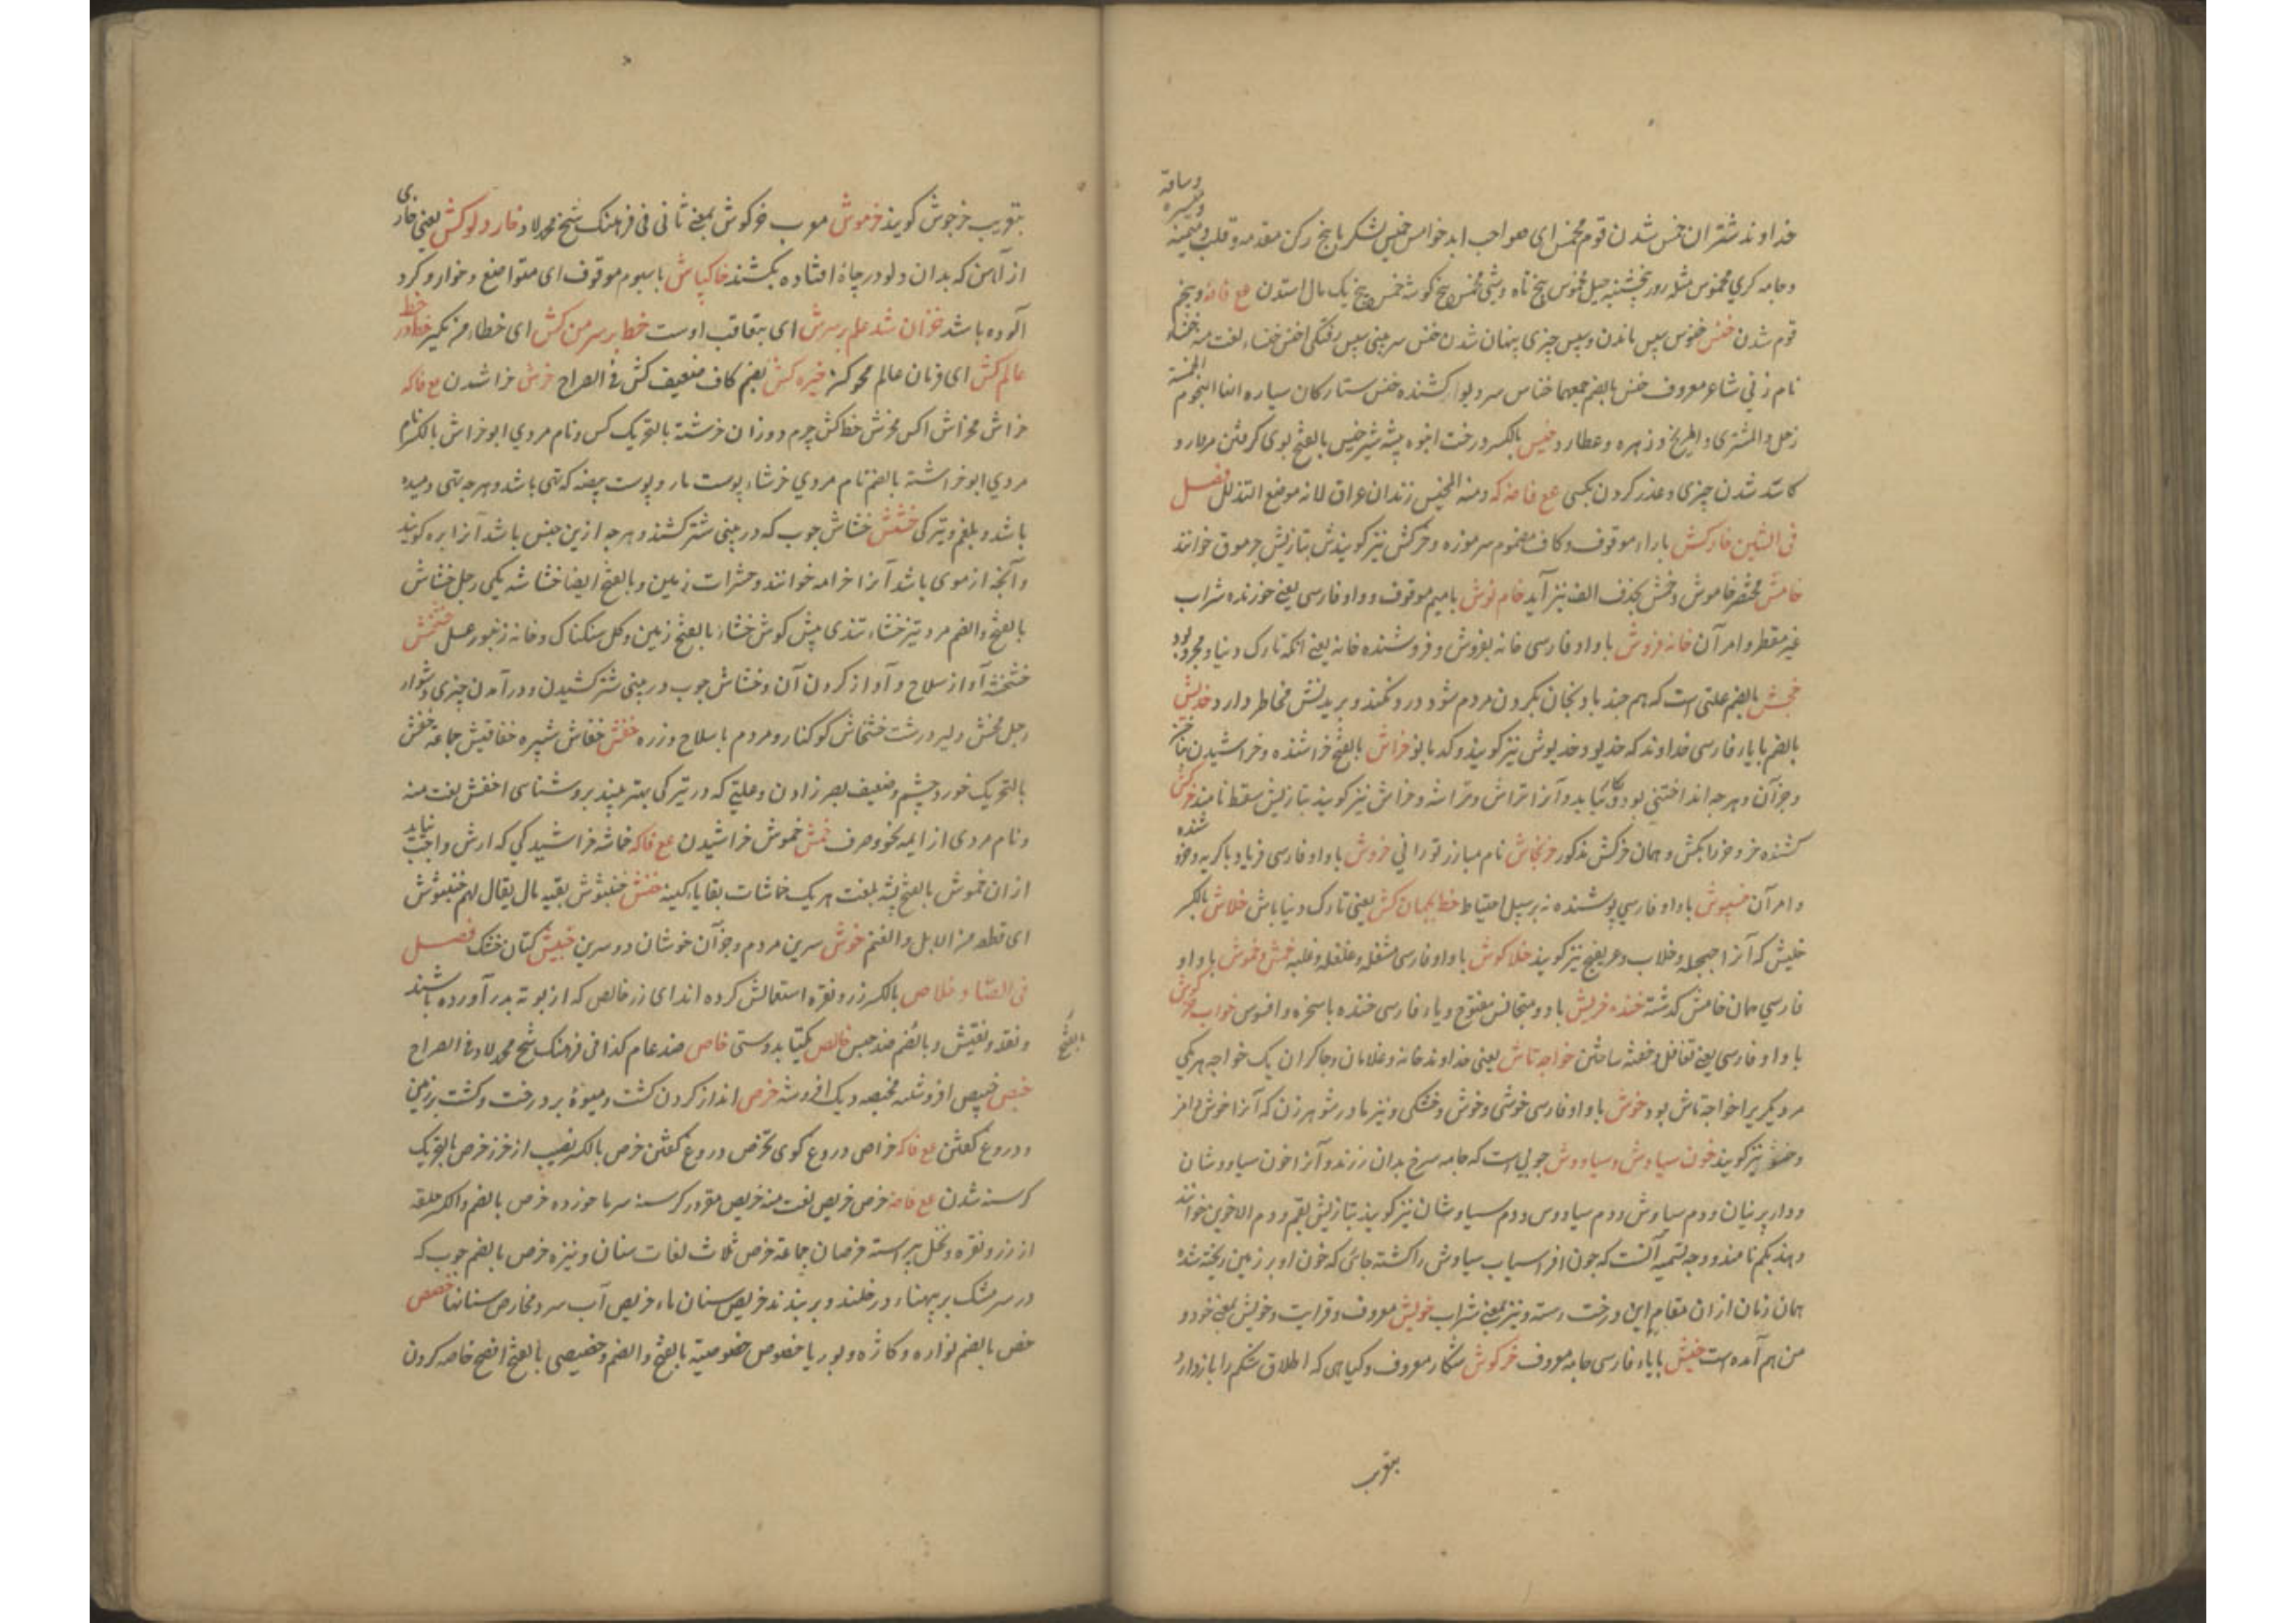 خداوند شتران خمس شدن قوم مخمس ای صواحب ابد خوامس خمیس لشکر با پنج رکن مقدمه و قلب و میمنه
و میسره و ساقه
قوم شدن خنس خنوس سپس ماندن و سپس چیزی پنهان شدن خنس سر بینی سپس رفتگی اخنس خنساء لغت منه خنساء
نام زنی شاعر معروف خنس بالضم جمعهما خناس سر دیو کشنده خنس ستارکان سیاره انها النجوم الخمسة
زحل والمشتری و المریخ و زهره و عطارد خیس بالکسر درخت انبوه بیشه شیر خیس بالفتح بوی کرفتن مردار و
کاسد شدن چیزی و عذر کردن بکسی مع فاصه که ومنه المخیس زندان عراق لانه موضع التذلل فصل
فی الشین خارکش با راء موقوف و کاف مضموم سرموزه و خرکش نیز کویندش بتازیش جرموق خوانند
خامش مختصر خاموش و خمش بحذف الف نیز آید خام نوش با میم موقوف و واو فارسی یعنی خورنده شراب
غیر مقطر و امر آن خانه فروش با واو فارسی خانه بفروش و فروشنده خانه یعنی آنکه تارک دنیا و مجرد بود
خجش بالضم علتی است که هم چند بادنجان بکردن مردم شود درد نکند و بریدنش مخاطر دارد خدیش
بالضم با یاء فارسی خداوند که خدیو و خدیوش نیز کویند و کدبانو خراش بالفتح خراشنده و خراشیدن
و جز آن و هرچه انداختنی بود و بکار نیاید و آنرا تراش و تراشه و خراش نیز کویند بتازیش سقط نامند خرکش
کشنده خر و خر را بکش و همان خرکش مذکور خرنجاش نام مبارز تورانی خروش با واو فارسی فریاد با کریه و جز
و امر آن خسپوش با واو فارسی پوشنده نه برسبیل احتیاط خط بجهان کش یعنی تارک دنیا باش خلاش بالکسر
خلیش که آنرا جیجله و خلاب و عریفج نیز کویند خلا کوش با واو فارسی مشغله و غلغله و غلبه خمش و خموش با واو
فارسی همان خامش کذشته خنده خریش با دو متجانس مفتوح و یاء فارسی خنده با سخره و افسوس خواب خرکوش
با واو فارسی یعنی تغافل و خفته ساختن خواجه تاش یعنی خداوند خانه و غلامان و چاکران یک خواجه هریکی
مر دیکریرا خواجه تاش بود خوش با واو فارسی خوشی و خوش و خشکی و نیز مادر شوهر زن که آنرا خوش دامن
و خشو نیز کویند خون سیاوش و سیاووش چوبی است که جامه سرخ بدان رزند و آنرا خون سیاووشان
و دار پرنیان و دم سیاوش و دم سیاووس و دم سیاوشان نیز کویند بتازیش بقم و دم الاخوین خوانند
و هند بکم نامند و وجه تسمیه آنست که چون افراسیاب سیاوش را کشته جائی که خون او بر زمین ریخته شده
همان زمان از ان مقام این درخت رسته و نیز بمعنی شراب خویش معروف و قرابت و خویش بمعنی خود و
من هم آمده است خیش با یاء فارسی جامه معروف خرکوش شکار معروف و کیاهی که اطلاق شکم را باز دارد
بتعریب
بتعریب خرجوش کویند خرموش معرب خرکوش بمعنی ثانی فی فرهنک شیخ محمد لاد خار دلوکش یعنی خاری
از آهن که بدان دلو در چاه افتاده بکشند خاکپاش با سیوم موقوف ای متواضع و خوار و کرد
آلوده باشد خزان شد علم بر سرش ای بتعاقب اوست خط بر سر من کش ای خطاء من مکیر خط در
عالم کش ای فرمان عالم محو کن خیره کش بضم کاف ضعیف کش فی الصراح خرش خراشدن مع فاکه
خراش مخراش اکس مخرش خط کش چرم دوزان خرشة بالتحریک کس و نام مردی ابو خراش بالکسر نام
مردی ابو خراشته بالضم نام مردی خرشاء پوست مار و پوست بیضه که تهی باشد و هرچه تهی دمیده
باشد و بلغم و تیرکی خشش خشاش چوب که در بینی شتر کشند و هرچه ازین جنس باشد آنرا بره کویند
و آنچه از موی باشد آنرا خزامه خوانند و حشرات زمین و بالفتح ایضا خشاشه یکی رجل خشاش
بالفتح والضم مرد تیز خشاء تندی پیش کوش خشاء بالفتح زمین و کل سنکناک و خانه زنبور عسل خشخش
خشخشة آواز سلاح و آواز کردن آن و خشاش چوب در بینی شتر کشیدن و در آمدن چیزی دشوار
رجل مخش دلیر درشت خشخاش کوکنار و مردم با سلاح و زره خفش خفاش شپره خفافیش جماعة خفش
بالتحریک خورد چشم و ضعیف بصر زادن و علتی که در تیرکی بهتر بیند بر روشنائی اخفش لغت منه
و نام مردی از ایمه نحو و صرف خمش خموش خراشیدن مع فاکه خماشه خراشیدکی که ارش واجب نیاید
از ان خموش بالفتح پشه بلغت هریک خماشات بقایاء کینه خنش خنبوش بقیه مال یقال لهم خنبوش
ای قطعة من الابل والغنم خوش سرین مردم و جز آن خوشان دو سرین خیش کتان خشک فصل
فی الصاد خلاص بالکسر زر و نقره استعمالش کرده اند ای زر خالص که از بوته بدر آورده باشند
بالفتح
و نقد و تفتیش و بالضم ضد حبس خالص یکتا بدوستی خاص ضد عام کذا فی فرهنک شیخ محمد لاد فی الصراح
خبص خبیص افروشه مخبصه دیک افروشه خرص انداز کردن کشت و میوۀ بر درخت و کشت بر زمین
و دروغ کفتن مع فاکه خراص دروغ کوی تخرص دروغ کفتن خرص بالکسر نصیب از خرز خرص بالتحریک
کرسنه شدن مع فاصه خرص خریص لغت منه خریص مقرور کرسنه سرما خورده خرص بالضم والکسر حلقه
از زر و نقره و نخل پیراسته خرصان جماعة خرص ثلاث لغات سنان و نیزه خرص بالضم چوب که
در سر مشک بر پهناء در خلند و بر بندند خریص سنان ماء خریص آب سرد مخارص سنانها خصص
خص بالضم نواره و کازه و بوریا خصوص خصوصیة بالفتح والضم و خصیصی بالفتح افصح خاصه کردن